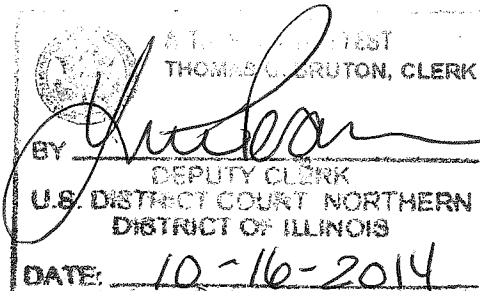 A T
TEST
THOMAS G. BRUTON, CLERK
BY
DEPUTY CLERK
U.S. DISTRICT COURT NORTHERN
DISTRICT OF ILLINOIS
DATE: 10-16-2014